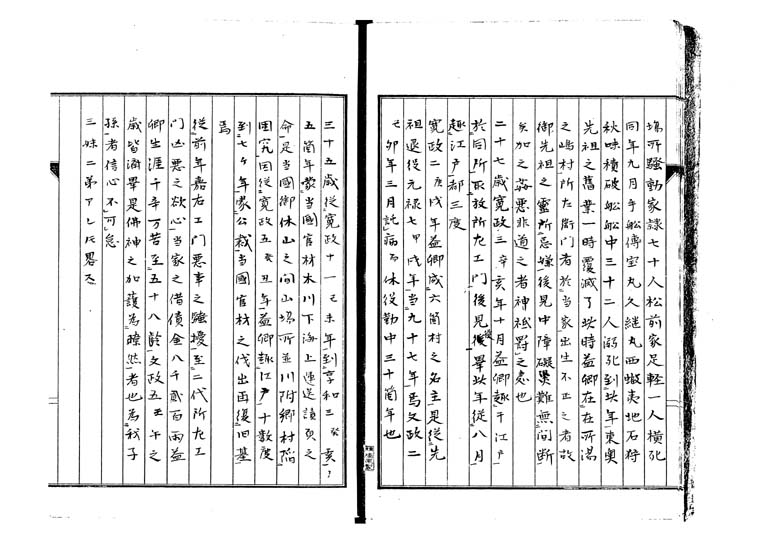 場所騒動家隷七十人松前家足軽一人横死
同年九月手船傳宝丸久継丸西蝦夷地石狩
秋味積破船船中三十二人溺死到此年東奥
先祖之舊業一時覆滅了此時益卿在在所湯
之嶋村所左衛門者於當家出生不正之者故
御先祖之靈所忌嫌後見中障礙災難無間断
矣加之姦悪非道之者神祇罸之処也
二十七歳寛政三辛亥年十月益卿趣于江戸
於同所取放所左エ門後見後見畢此年從八月
趣江戸都三度
寛政二庚戌年益卿歳六箇村之名主是從先
祖退役元禄七甲戌年當九十七年焉文政二
己卯年三月託病而休役勤中三十箇年也
三十五歳從寛政十一己未年到享和三癸亥年
五箇年蒙當國官材木川下海上運送請負之
命是當國御休山之間山場所並川附郷村陥
困究因從寛政五癸丑年益卿趣江戸十数度
到七ケ年蒙公裁當國官材之伐出再復旧基
焉
從前年嘉右エ門悪事之騒擾至二代所左エ
門凶悪之欲心當家之借債金八千貳百両益
卿生涯千辛万苦至五十八齢文政五壬午之
歳皆済畢是佛神之加護為瞭然者也為我子
孫者信心不可怠
三妹二弟